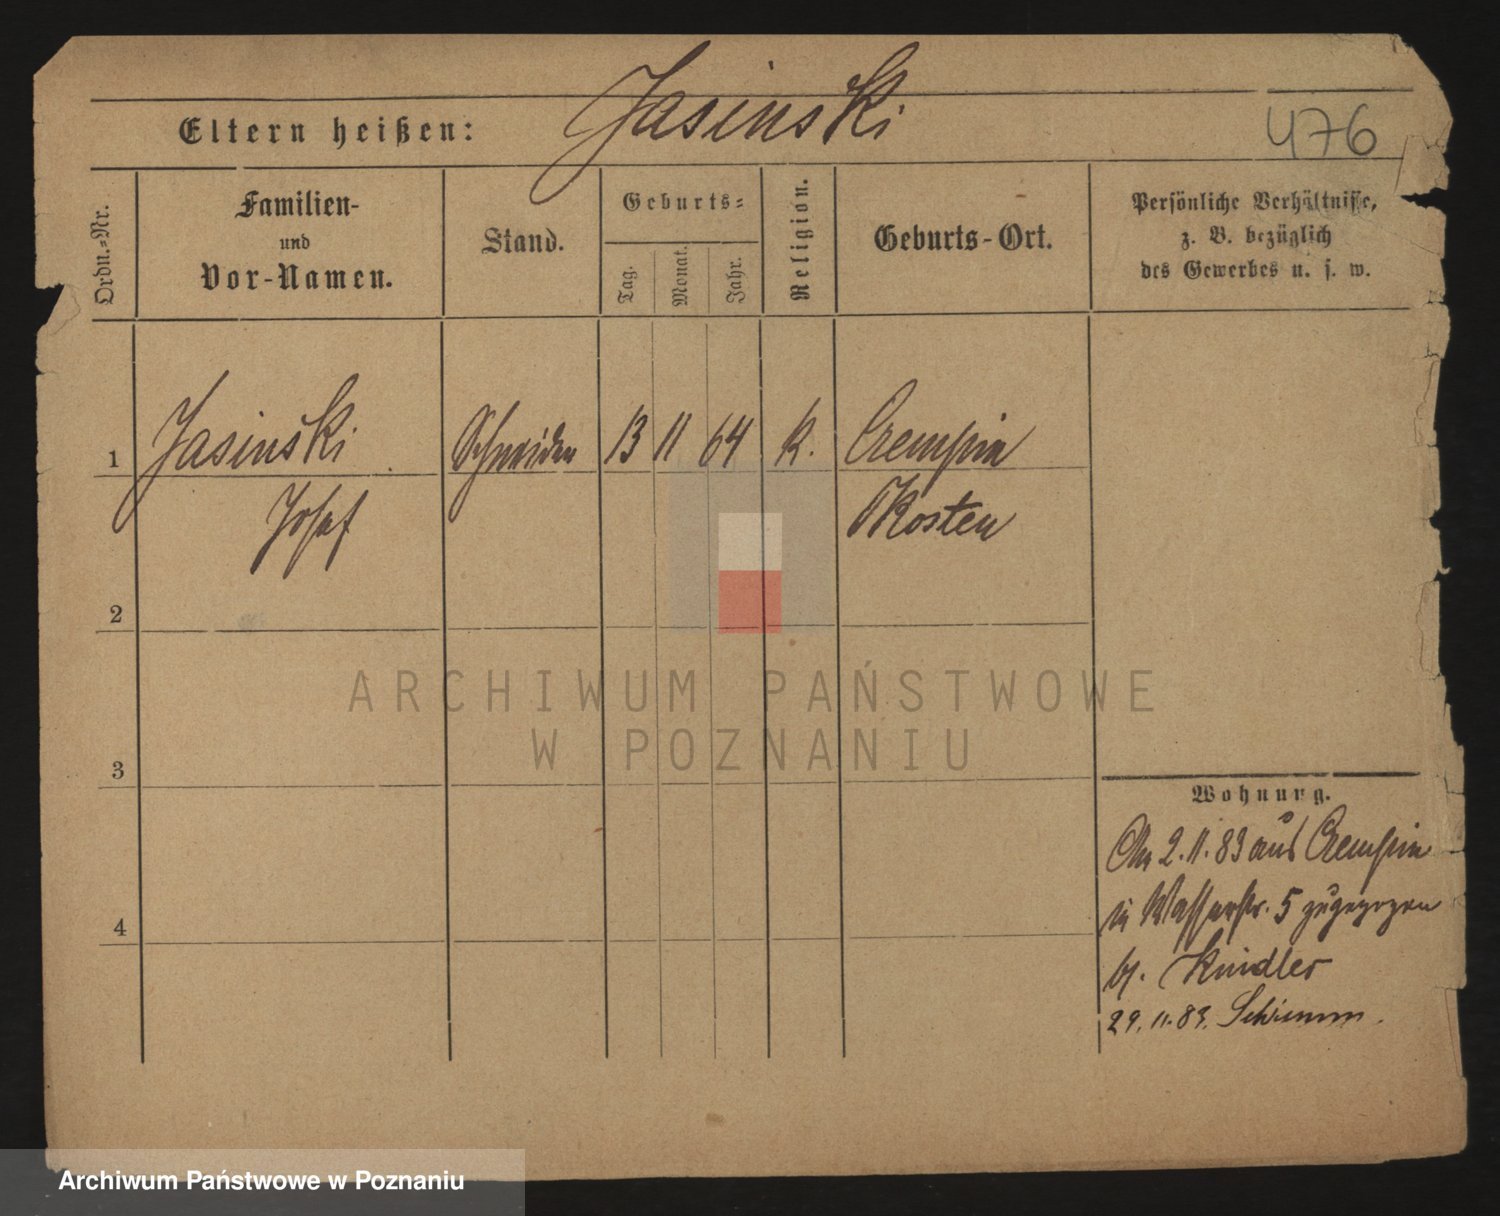 Jasinski
Eltern heißen:
476
Ordn.=Nr.
Familien-
und
Vor-Namen.
Stand.
Geburts=
Tag.
Monat.
Jahr.
Religion.
Geburts-Ort.
Persönliche Verhältnisse,
z. B. bezüglich
des Gewerbes u. s. w.
1
Jasinski
Schneider
13
11
64
k.
Czempin
Josef
Kosten
2
ARCHIWUM PAŃSTWOWE
W POZNANIU
3
Wohnung.
2.11.83 aus Czempin
in Wasserstr. 5 zugezogen
4
b/. Kindler
29.11.83. Schimm.
Archiwum Państwowe w Poznaniu